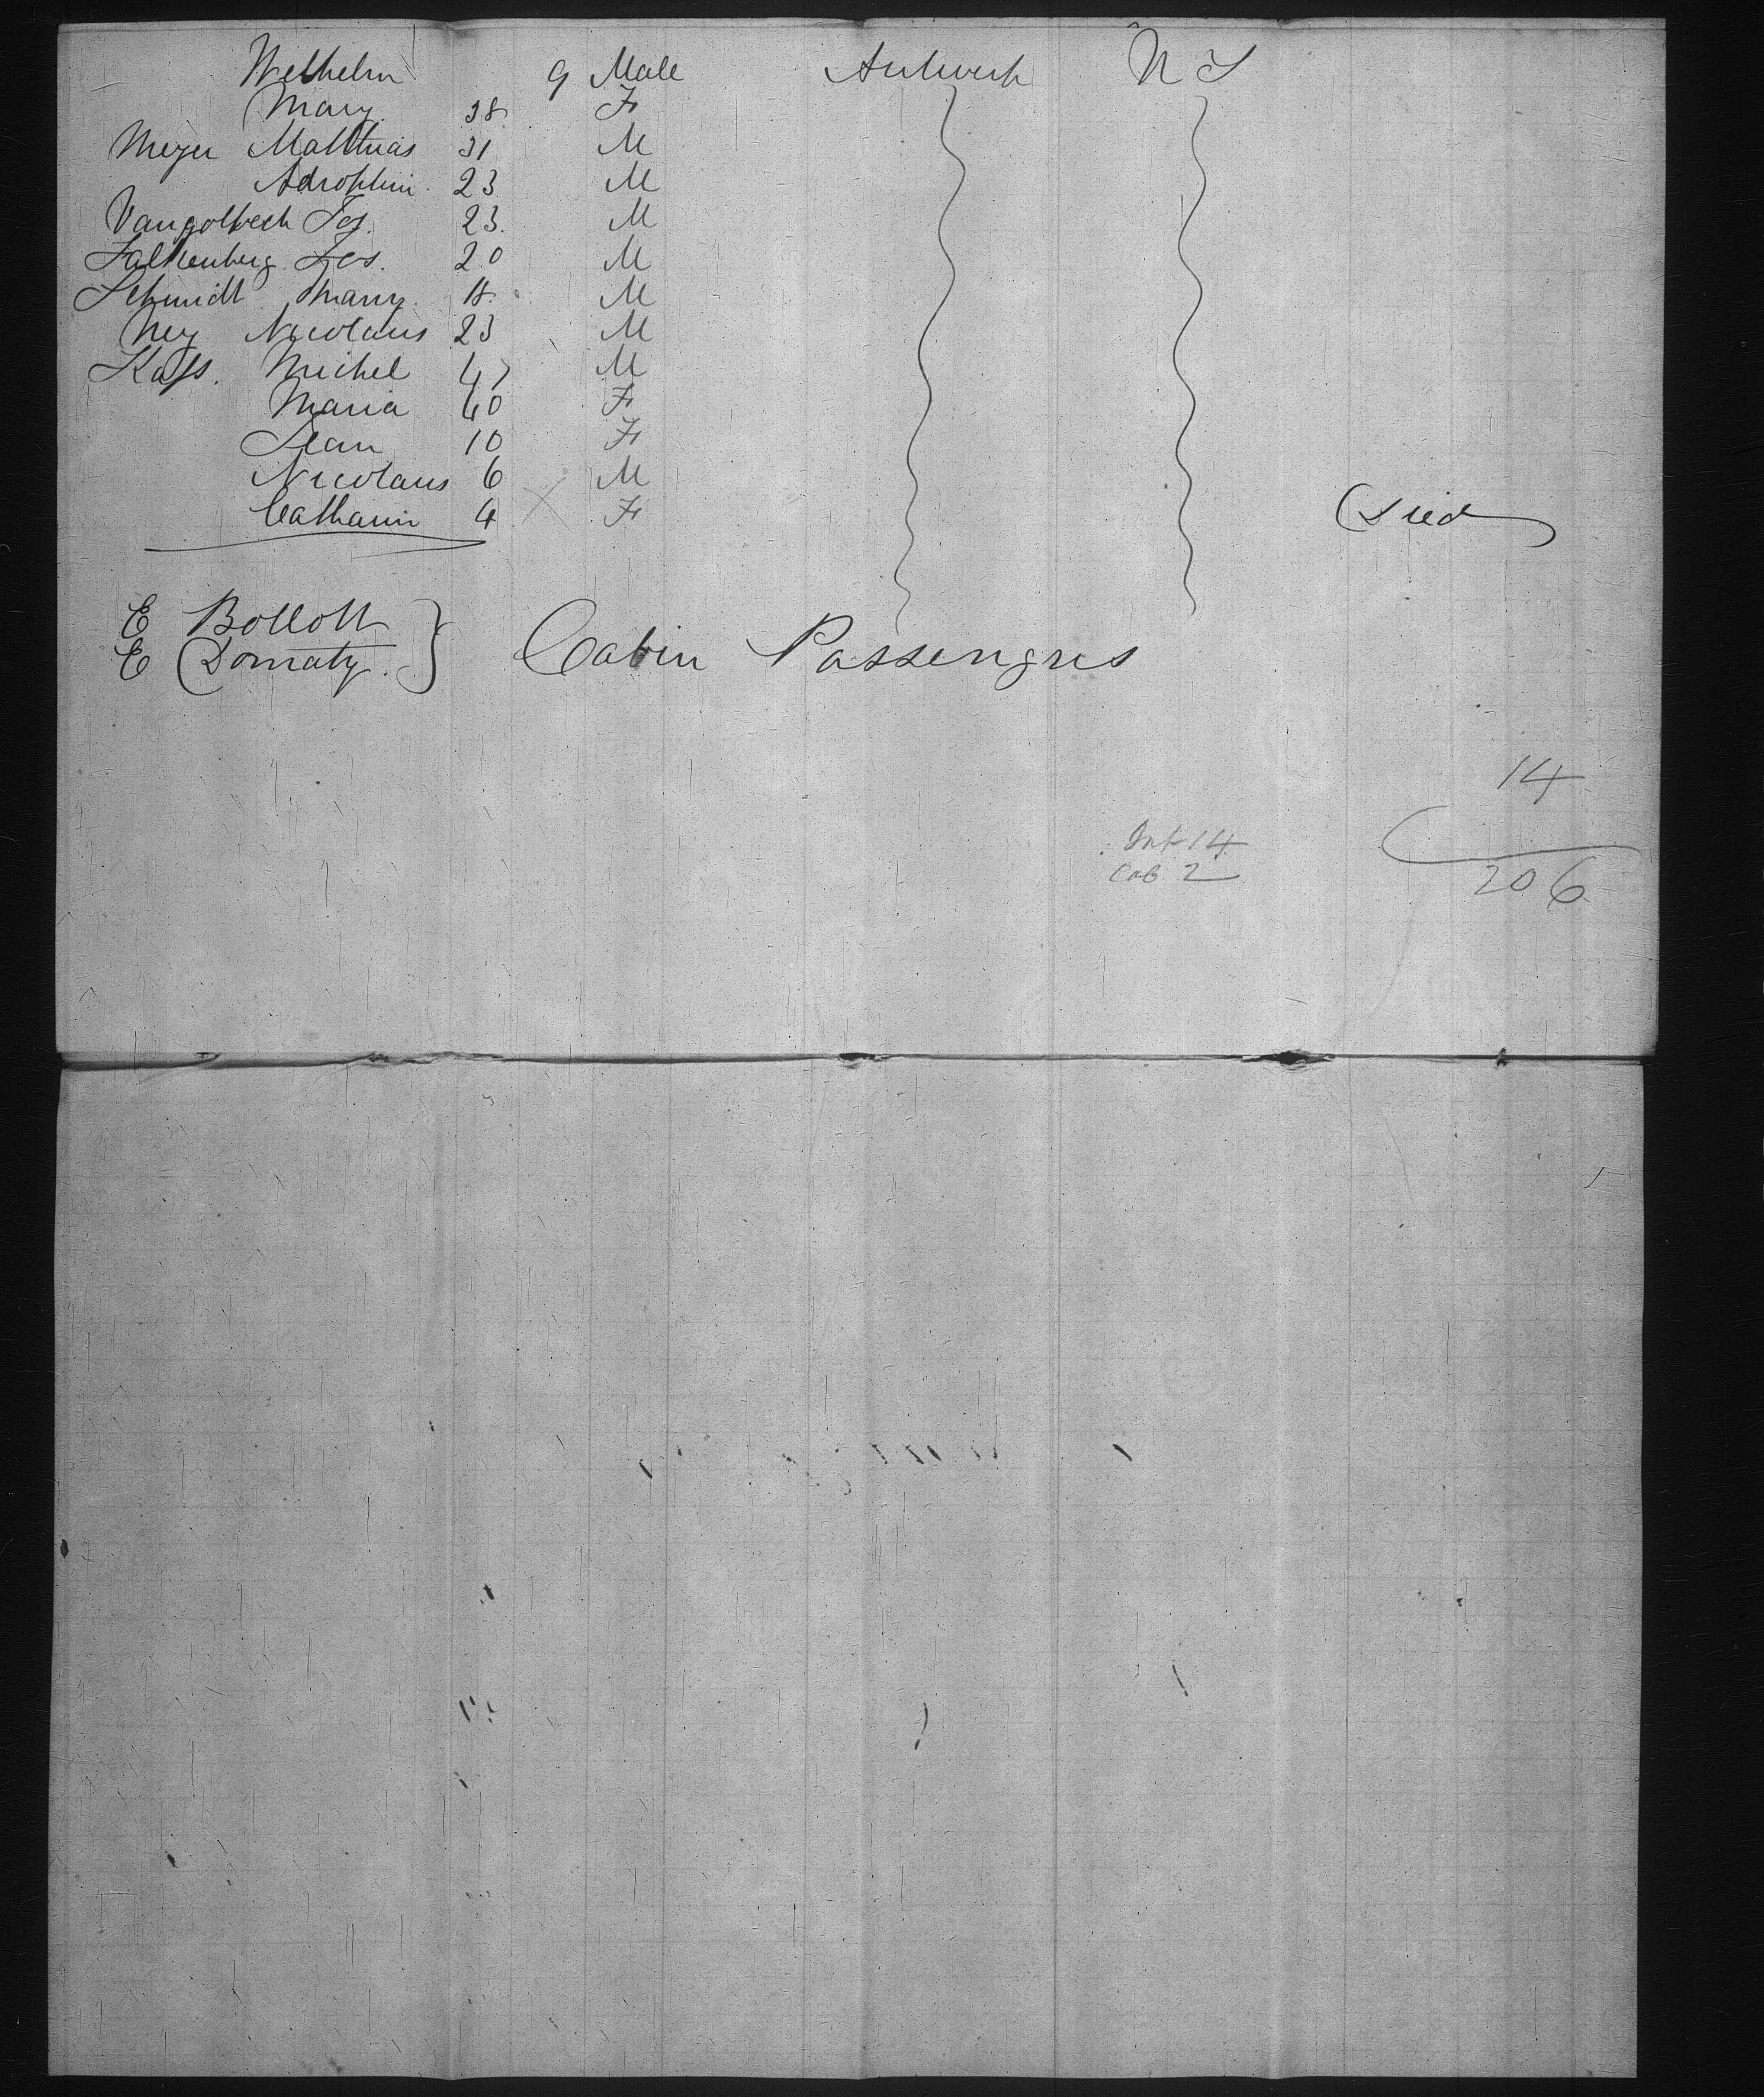 Wilhelm 9 Male Antwerp N Y
Mary 38 F
Meyer Matthias 31 M
23 M
Jos. 23. M
Falkenberg Jos. 20 M
Schmidt Mary. 18. M
Ney Nicolaus 23 M
Kass. Michel 47 M
Maria 40 F
Jean 10 F
Nicolaus 6 M
Catharin 4 X F Died
E Bollott
E Domaty. } Cabin Passengres
14
Inf 14
Cab 2
206